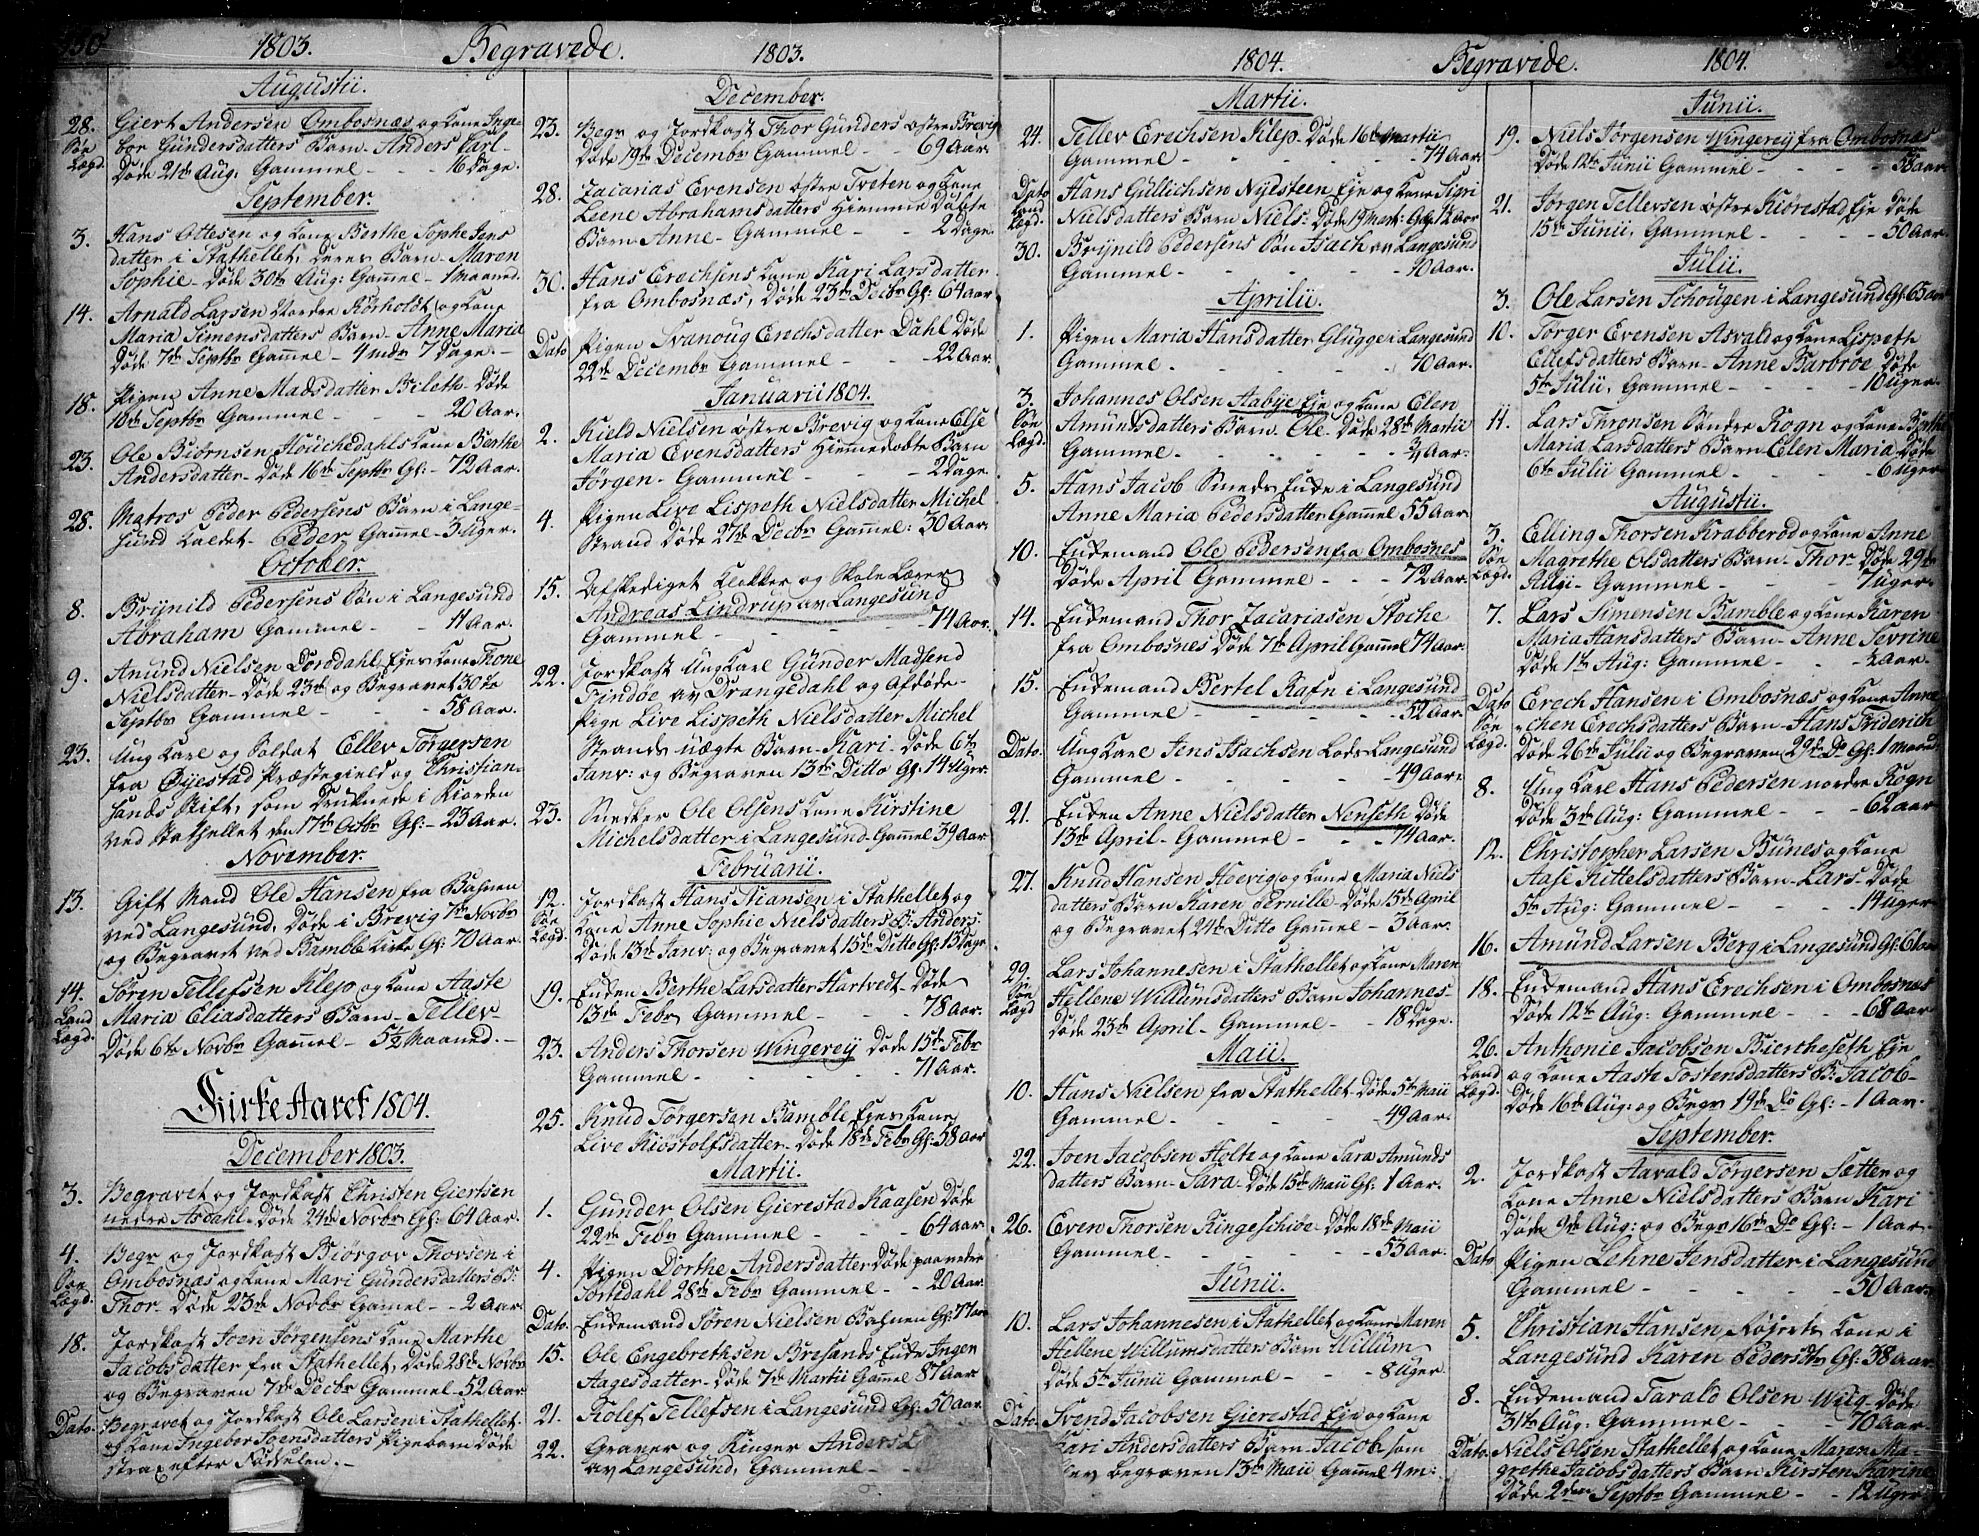 1803. Begravede. 1803.
Augustii.
28. Giert Andersen Ombosnæs og Kone Inge-
Søe bor Gundersdatters Barn - Anders Carl -
Lægd. Døde 21de Aug: Gammel - - 16 Dage.
September.
3. Hans Ottesen og Kone Berthe Sophe Jens
datter i Stathellet, deres Barn - Maren
Sophie - Døde 30te Aug: Gamel - 1 Maaned.
14. Arnald Larsen Nordre Rørholdt, og Kone
Maria Simensdatters Barn - Anne Maria
Døde 7de Septbr Gamel - 4 mdr 7 Dage. -
18. Pigen Anne Madsdatter Bileth - Døde
10de Septbr Gammel - - 20 Aar.
23. Ole Biørnsen Houichedahls Kone Berthe
Andersdatter - Døde 16de Septbr Gl: - 72 Aar.
28. Matros Peder Pedersens Barn i Lange-
sund kaldet - Peder Gamel - 3 Uger.
October.
8. Brynild Pedersens Søn i Langesund
Abraham Gammel - - 11 Aar.
9. Amund Nielsen Dørdahl Ejes Kone Thone
Nielsdatter - Døde 23de og Begravet 30te
Septbr Gammel - - 58 Aar.
23. Ung Karl og Soldat Ellev Tørgersen
fra Øyestad Præstegield og Christian-
sands Stift, som Druknede i Fiorden
ved Stathellet den 17de Octbr Gl: - 23 Aar.
November.
13. Gift Mand Ole Hansen fra Bahnen
ved Langesund, Døde i Brevig 7de Novbr
og Begravet ved Bamble Kirke Gl: 70 Aar.
14. Søren Tellefsen Klep og Kone Aaste
Land Maria Eliasdatters Barn - Tellev
Lægd. Døde 6te Novbr Gamel - 5½ Maaned. -
Kirke Aaret 1804.
December 1803.
3. Begravet og Jordkast Christen Giertsen
nedre Asdahl - Døde 24de Novbr Gl: 64 Aar.
4. Begr og Jordkast Biørgov Thorsen i
Søe Ombosnæs og Kone Mari Gundersdatters B:
Lægd. Thor - Døde 23de Novbr Gamel - - 2 Aar.
18. Jordkast Joen Jørgensens Kone Marthe
Jacobsdatter fra Stathellet, Døde 28de Novbr
og Begraven 7de Decbr Gammel - 52 Aar
Dato. Begravet og Jordkast Ole Larsen i Stathellet
og Kone Ingebor Joensdatters Pigebarn Døde
strax efter Fødselen. -
December.
23. Begr og Jordkast Thor Gunders østre Brevig
Døde 19de Decembr Gammel - - 69 Aar.
28. Zacarias Evensen østre Tveten og Kone
Leene Abrahamsdatters Hiemme Døbte
Barn Anne - Gammel - - 2 Dage.
30. Hans Erechsens Kone Kari Larsdatter
fra Ombosnæs, Døde 23de Decbr Gl: 64 Aar
Dato Pigen Svanoug Erechsdatter Dahl Døde
22de Decembr Gammel - - 22 Aar.
Januarii 1804.
2. Kield Nielsen østre Brevig og Kone Else
Maria Evensdatters Hiemmedøbte Barn
Jørgen - Gammel - - 2 Dage.
4. Pigen Live Lispeth Nielsdatter Michel
Strand Døde 27de Decbr Gamel: 30 Aar.
15. Afskediget Klokker og Skole Lærer
Andreas Lindrup av Langesund
Gammel - - 74 Aar.
22. Jordkast Ung Karl Gunder Madsen
Findøe av Drangedahl og Afdøde
Pige Live Lispeth Nielsdatter Michel
Strands uægte Barn - Kari - Døde 6te
Janv: og Begraven 13de Ditto Gl: 14 Uger.
23. Snedker Ole Olsens Kone Kirstine
Michelsdatter i Langesund - Gamel 39 Aar.
Februarii.
12. Jordkast Hans Stiansen i Stathellet og
Søe Kone Anne Sophie Nielsdatters B: Anders
Lægd. Døde 13de Janv: og Begravet 15de Ditto Gl: 13 Dage.
19. Enken Berthe Larsdatter Hartvedt - Døde
13de Febr Gammel - - 78 Aar.
23. Anders Thorsen Wingerey Døde 15de Febr
Gammel - - 71 Aar.
25. Knud Tørgersen Bamble Ejes Kone
Live Kiøstolfsdatter - Døde 18de Febr Gl: 58 Aar
Martii.
1. Gunder Olsen Gierestad Kaasen Døde
22de Febr Gammel - - 64 Aar.
4. Pigen Dorthe Andersdatter Døde paa nedre
Tortedahl 28de Febr Gammel - - 20 Aar.
Dato. Enkemand Søren Nielsen Bahnen Gl: 77 Aar
15. Ole Engebrethsen Bresands Enke Ingen
Aagesdatter - Døde 7de Martii Gamel 87 Aar
21. Rolef Tellefsen i Langesund Gl: 50 Aar.
22. Graver og Ringer Anders
av Langesund, Gammel - -
1804. Begravede. 1804.
Martii.
24. Tellev Erechsen Klep - Døde 16de Martii
Gammel - - 74 Aar
Dato Hans Gullichsen Nysteen Eje og Kone Sigri
Land Nielsdatters Barn Niels - Døde 19 Mart: Gl: ½ Aar
Lægd.
30. Brynild Pedersens Søn Isach av Langesund
Gammel - - 10 Aar.
Aprilii.
1. Pigen Maria Hansdatter Glugge i Langesund
Gammel - - 70 Aar.
3. Johannes Olsen Aabye Eje og Kone Elen
Søe Amundsdatters Barn - Ole - Døde 28de Martii
Lægd. Gammel - - ¾ Aar.
5. Hans Jacob Smeds Enke i Langesund
Anne Maria Pedersdatter Gamel 55 Aar
10. Enkemand Ole Pedersen fra Ombosnes
Døde April Gammel - - 72 Aar.
14. Enkemand Thor Zacariasen Stoche
fra Ombosnes Døde 7de April Gamel 74 Aar.
15. Enkemand Bertel Rafn i Langesund
Gammel - - 52 Aar.
Dato. Ung Karl Jens Isachsen Lods Langesund
Gammel - - 49 Aar.
21. Enken Anne Nielsdatter Nenseth Døde
13de April - Gammel - - 74 Aar.
27. Knud Hansen Hoevig og Kone Maria Niels
datters Barn Karen Pernille - Døde 15de April
og Begravet 24de Ditto Gamel - 3 Aar.
29. Lars Johannesen i Stathellet og Kone Maren
Søe Hellene Willumsdatters Barn Johannes -
Lægd Døde 23de April - Gammel - - 18 Dage.
Maii.
10. Hans Nielsen fra Stathellet - Døde 5te Maii
Gammel - - 49 Aar.
22. Joen Jacobsen Holte og Kone Sara Amunds
datters Barn - Sara - Døde 15de Maii Gl: 1 Aar.
26. Even Thorsen Ringeschiøe - Døde 18de Maii
Gammel - - 53 Aar.
Junii.
10. Lars Johannesen i Stathellet og Kone Maren
Hellene Willumsdatters Barn Willum
Døde 5te Junii Gammel - - 8 Uger
Dato. Svend Jacobsen Gierestad Eje og Kone
Kari Andersdatters Barn - Jacob som
blev begraven 13de Maii Gamel 4 m:
Junii.
19. Niels Jørgensen Wingerey fra Ombosnæs
Døde 12te Junii Gammel - - 58 Aar.
21. Jørgen Tellevsen østre Kiørestad Eje Døde
15de Junii, Gammel - - 50 Aar.
Julii.
3. Ole Larsen Schougen i Langesund Gl: 65 Aar
10. Tørger Evensen Asvald og Kone Lispeth
Ellefsdatters Barn - Anne Barbroe Døde
5te Julii, Gammel - - 10 Uger.
11. Lars Thronsen Søndre Rogn og Kone Berthe
Maria Larsdatters Barn - Elen Maria Døde
6te Julii Gammel - - 6 Uger
Augustii.
3. Elling Thorsen Krabberød og Kone Anne
Søe Magrethe Olsdatters Barn - Thor - Døde 29de
Lægd. Julii - Gammel - - 7 Uger.
7. Lars Simensen Bamble og Kone Karen
Maria Hansdatters Barn - Anne Sevrine
Døde 1te Aug: Gammel - - Aar.
Dato Erech Hansen i Ombosnæs og Kone Anne
Søe chen Erechsdatters Barn - Hans Friderich
Lægd. Døde 26de Julii og Begraven 29de Do Gl: 1 Maaned.
8. Ung Karl Hans Pedersen nordre Rogn
Døde 3de Aug: Gammel - - 62 Aar
12. Christopher Larsen Bunes og Kone
Aase Kittelsdatters Barn - Lars - Døde
5te Aug: Gammel - - 14 Uger
16. Amund Larsen Berg i Langesund Gl: 61 Aar
18. Enkemand Hans Erechsen i Ombosnæs
Døde 12te Aug: Gammel - - 68 Aar
26. Anthonie Jacobsen Biertheseth Eje
Land og Kone Aaste Tostensdatters B: Jacob -
Lægd. Døde 16de Aug: og Begr 19de Do Gl: - 1 Aar.
September.
2. Jordkast Aavald Tørgersen Sætter og
Kone Anne Nielsdatters Barn Kari
Døde 9de Aug: og Begr 16de Do Gl: - 1 Aar.
Dato Pigen Lehne Jensdatter i Langesund
Gammel - - 50 Aar.
5. Christian Hansen Røyers Kone i
Langesund Karen Pedersdtr Gl: 38 Aar.
8. Enkemand Tarald Olsen Wiig - Døde
31te Aug: Gammel - - 70 Aar.
Dato. Niels Olsen Stathellet og Kone Maren Ma-
grethe Jacobsdatters Barn Kirsten Karine
Døde 2den Septbr Gammel - - 12 Uger